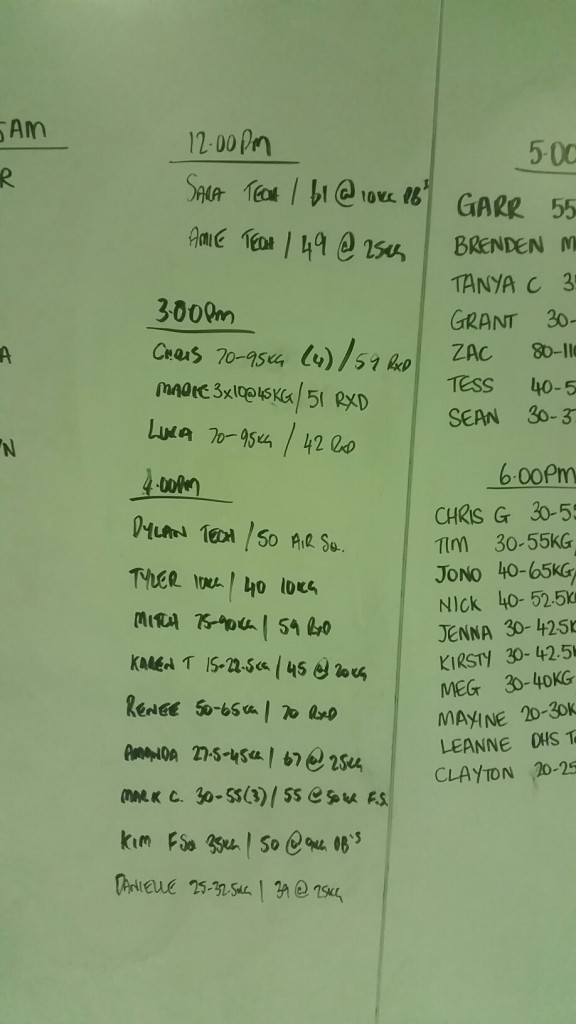 5AM
R
A
N
12.00PM
SARA TECH / 61 @ 10KG DB'S
AMIE TECH / 49 @ 25KG
3.00PM
CHRIS 70-95KG (4) / 59 RXD
3X10@45KG / 51 RXD
LUKA 70-95KG / 42 RXD
4.00PM
DYLAN TECH / 50 AIR SQ.
TYLER 10KG / 40 10KG
MITCH 75-90KG / 59 RXD
KAREN T 15-22.5KG / 45 @ 20KG
RENEE 50-65KG / 70 RXD
AMANDA 27.5-45KG / 67 @ 25KG
MARK C. 30-55(3) / 55 @ 50KG F.S.
KIM FSQ 35KG / 50 @ 9KG DB'S
DANIELLE 25-32.5KG / 39 @ 25KG
5.00
GARR 55
BRENDEN M
TANYA C 3
GRANT 30-
ZAC 80-110
TESS 40-5
SEAN 30-37
6.00PM
CHRIS G 30-55
TIM 30-55KG/
JONO 40-65KG/
NICK 40-52.5K
JENNA 30-42.5K
KIRSTY 30-42.5K
MEG 30-40KG
MAXINE 20-30K
LEANNE OHS T
CLAYTON 20-25